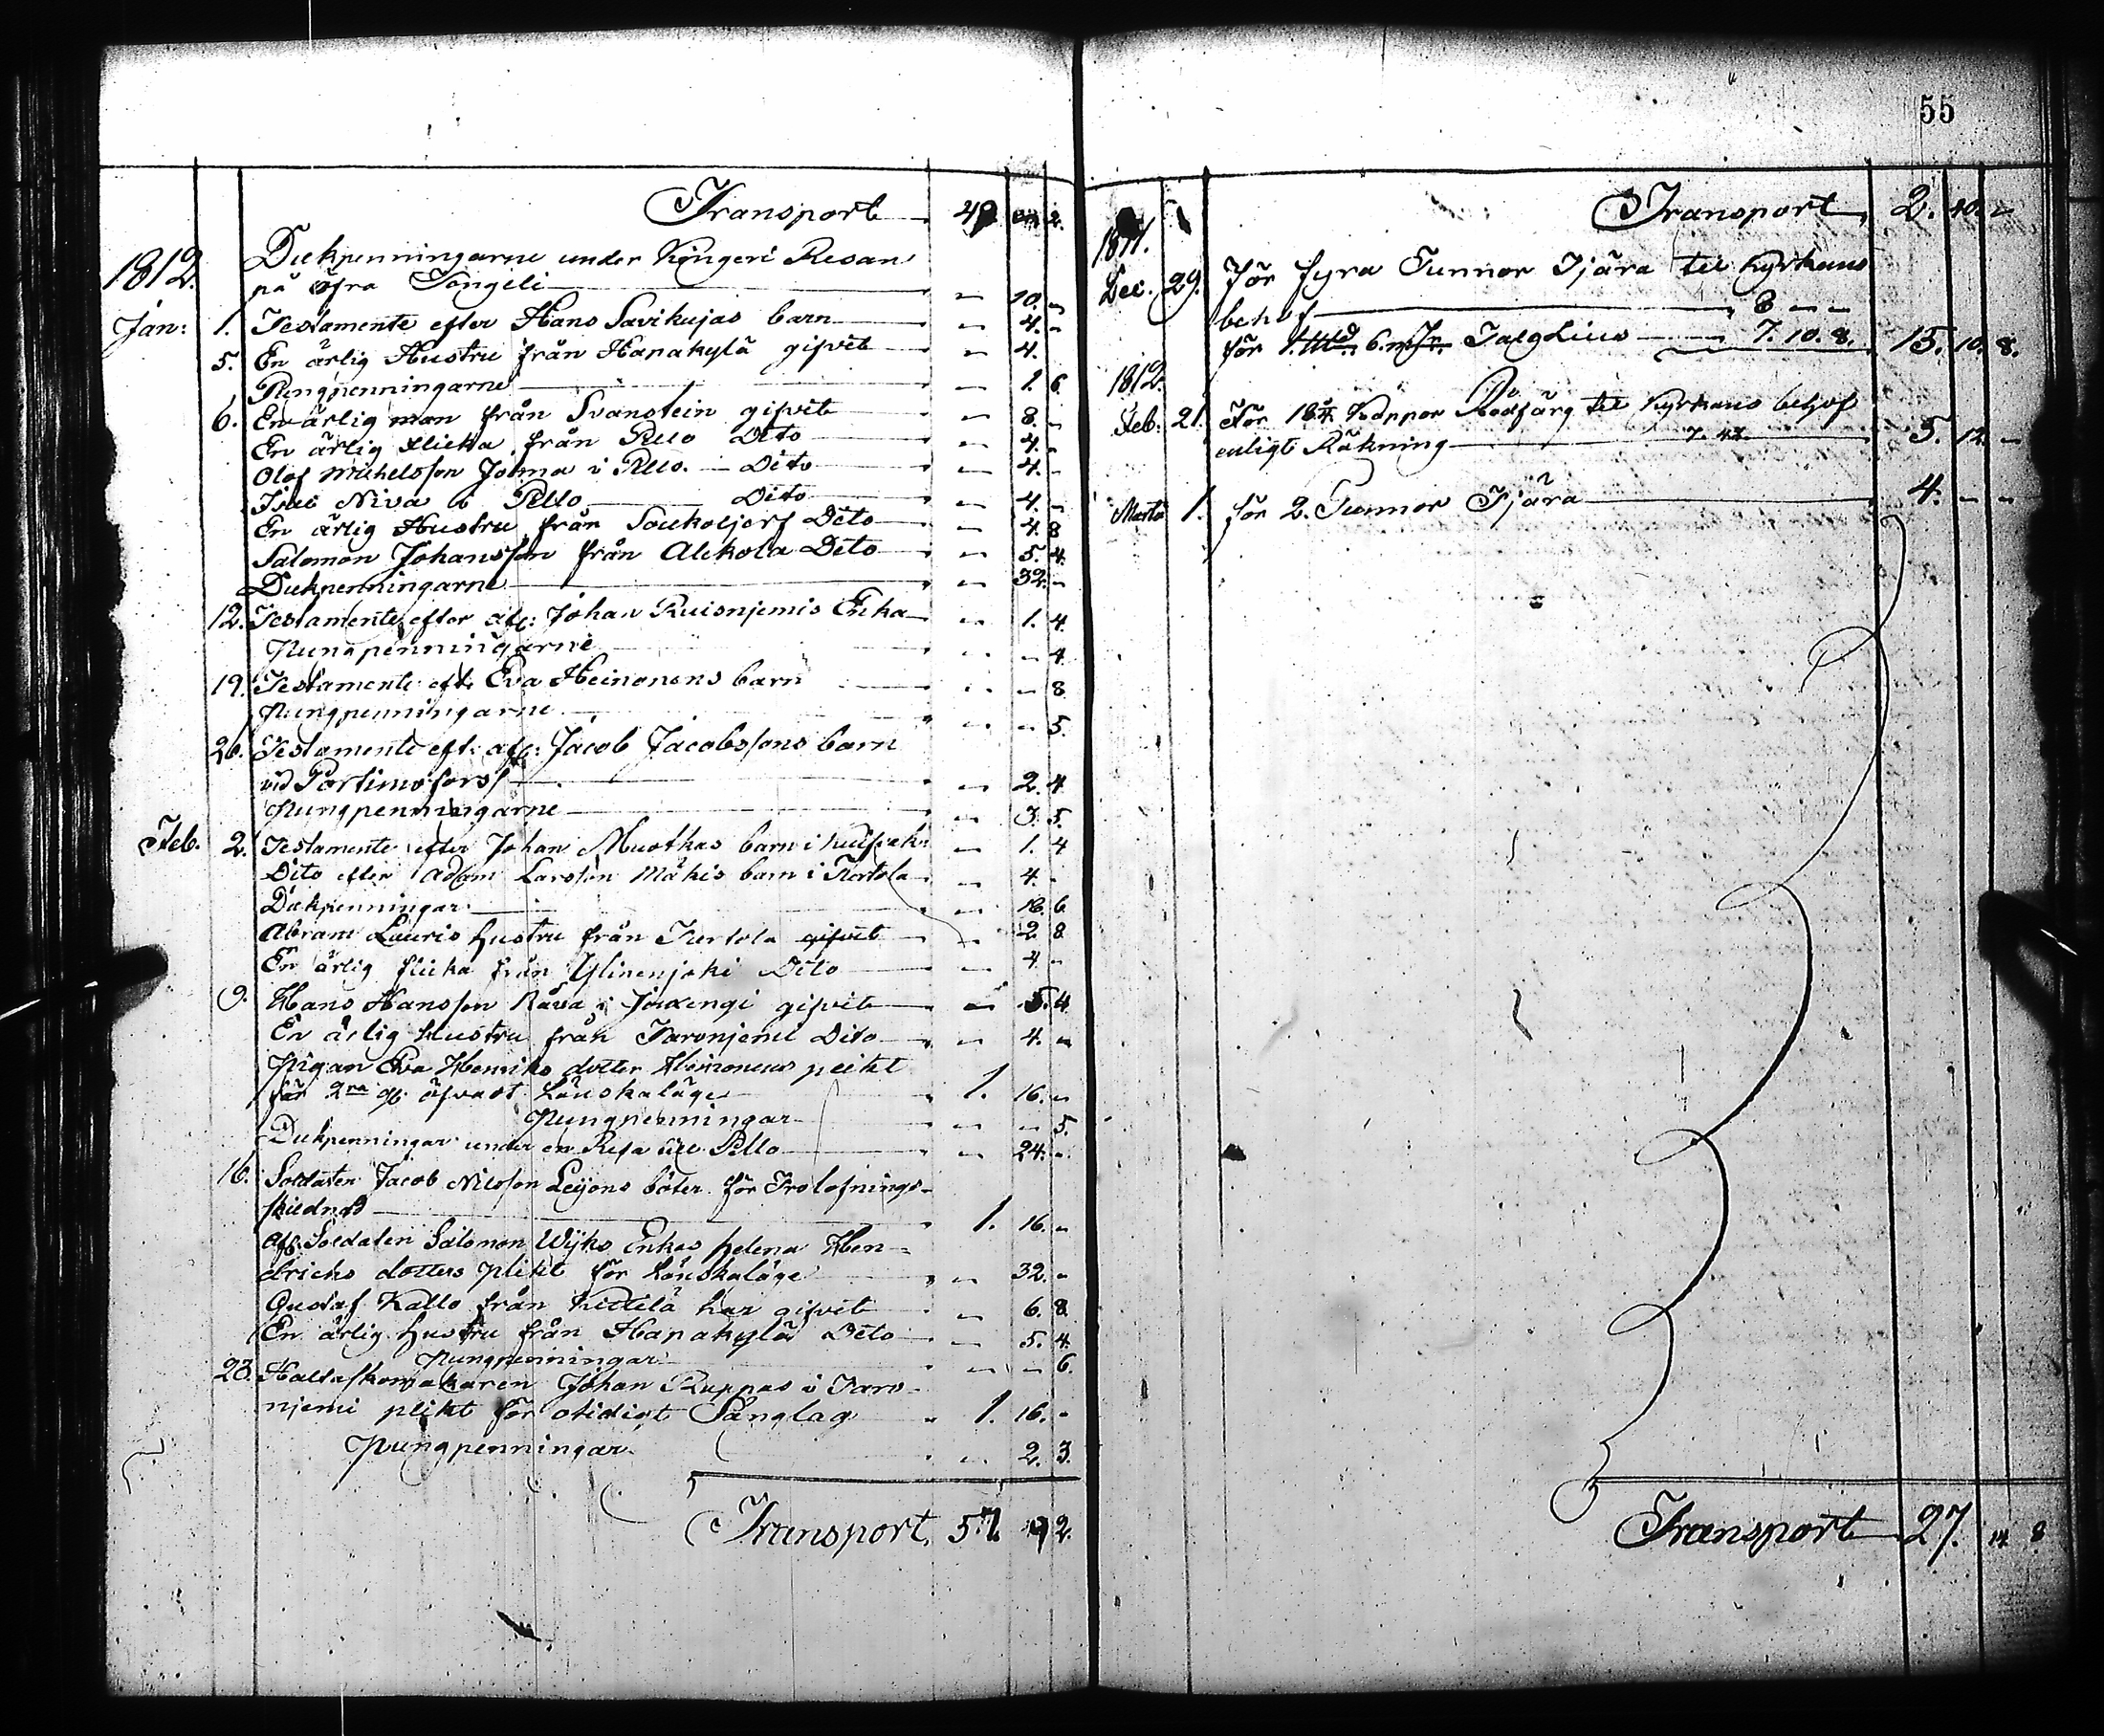 Transport 49. 2.
1812. Diekpenningarne under Kingeri Resan
på öfra Tengeli — 10. —
Jan: 1. Testamente efter Hans Savikujas barn — 4. —
5. En ärlig Hustru från Hapakylä gifvit — 4.
Pungpenningarne — 1. 6.
6. En ärlig man från Svanstein gifvit — 8. —
En ärlig flicka från Pello Dito — 4. —
Olof Michelsson Jolma i Pello. — Dito — 4. —
Isac Niva i Pello — Dito — 4. —
En ärlig Hustru från Soukoljerf Dito — 4. 8
Salomon Johansson från Alckola Dito — 5. 4.
Diekpenningarne — 32. —
12. Testamente efter afl: Johan Ruisnjemis Enka — 1. 4.
Pungpenningarne — — 4.
19. Testamente eft: Eva Heinonens barn — — 8.
Pungpenningarne — — 5.
26. Testamente eft: afl: Jacob Jacobssons barn
vid Portimofors — 2. 4.
Pungpenningarne — 3. 5.
Feb. 2. Testamente efter Johan Muotkas barn i
Dito efter Adam Larsson Mäkis barn i Turtola — 4. —
— 1. 4
Diekpenningar — 18. 6.
Abram Lauris hustru från Turtola gifvit — 2. 8
En ärlig flicka från Ylinenjoki Dito — 4. —
9. Hans Hansson Råva i Juoxengi gifvit — 5. 4.
En ärlig Hustru från Taronjemi Dito — 4. —
Pigan Eva Henriks dotter Heinonens plikt
för 2ra gg. öfvadt Lönskaläge 1. 16. —
Pungpenningar — — 5.
Diekpenningar under en Resa till Pello — 24. —
16. Soldaten Jacob Nilsson Leijons böter för Trolofnings-
skildnad — 1. 16. —
Afl. Soldaten Salomon Wijks Enkas Helena Hen-
drichs dotters plikt för Lönskaläge — 32. —
Gustaf Kallo från Kittilä har gifvit — 6. 8.
En ärlig hustru från Hapakylä Dito — 5. 4.
Pungpenningar — — 6.
23. Johan Ruppas i Taro-
njemi plikt för otidigt Sänglag 1. 16. —
Pungpenningar — 2. 3.
Transport, 57. 9 2.
55
Transport, 2. 40. —
1811.
Dec. 29. För fyra Tunnor Tjära til Kyrkans
behof — 8 — —
för 6. Talgljus — 7. 10. 8. 15. 10. 8.
1812.
Feb: 21. För 18 Kappor Rödfärg till Kyrkans behof
enligt Räkning — 5. 12. —
Martii 1. för 2. Tunnor Tjära — 4. — —
Transport 27. 14 8.